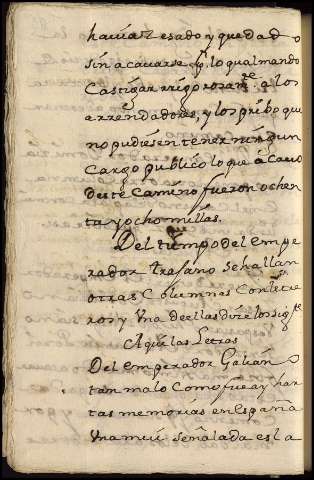 havia zesado y quedado
sin acavarse pr. lo qual mando
Castigar rrigorosamte. a los
arrendadores, y los pribo que
no pudiesen tener ningun
Cargo publico lo que acavo
deste Camino fueron ochen
ta y ocho millas.
Del tiempo del empe
rador trajano se hallan
otras Columnas Con letre
ros y Vna de ellas dize lo sigte.
Aqui las Letras
Del emperador Galian
tan malo Como fue ay har
tas memorias en España
Vna mui señalada es la